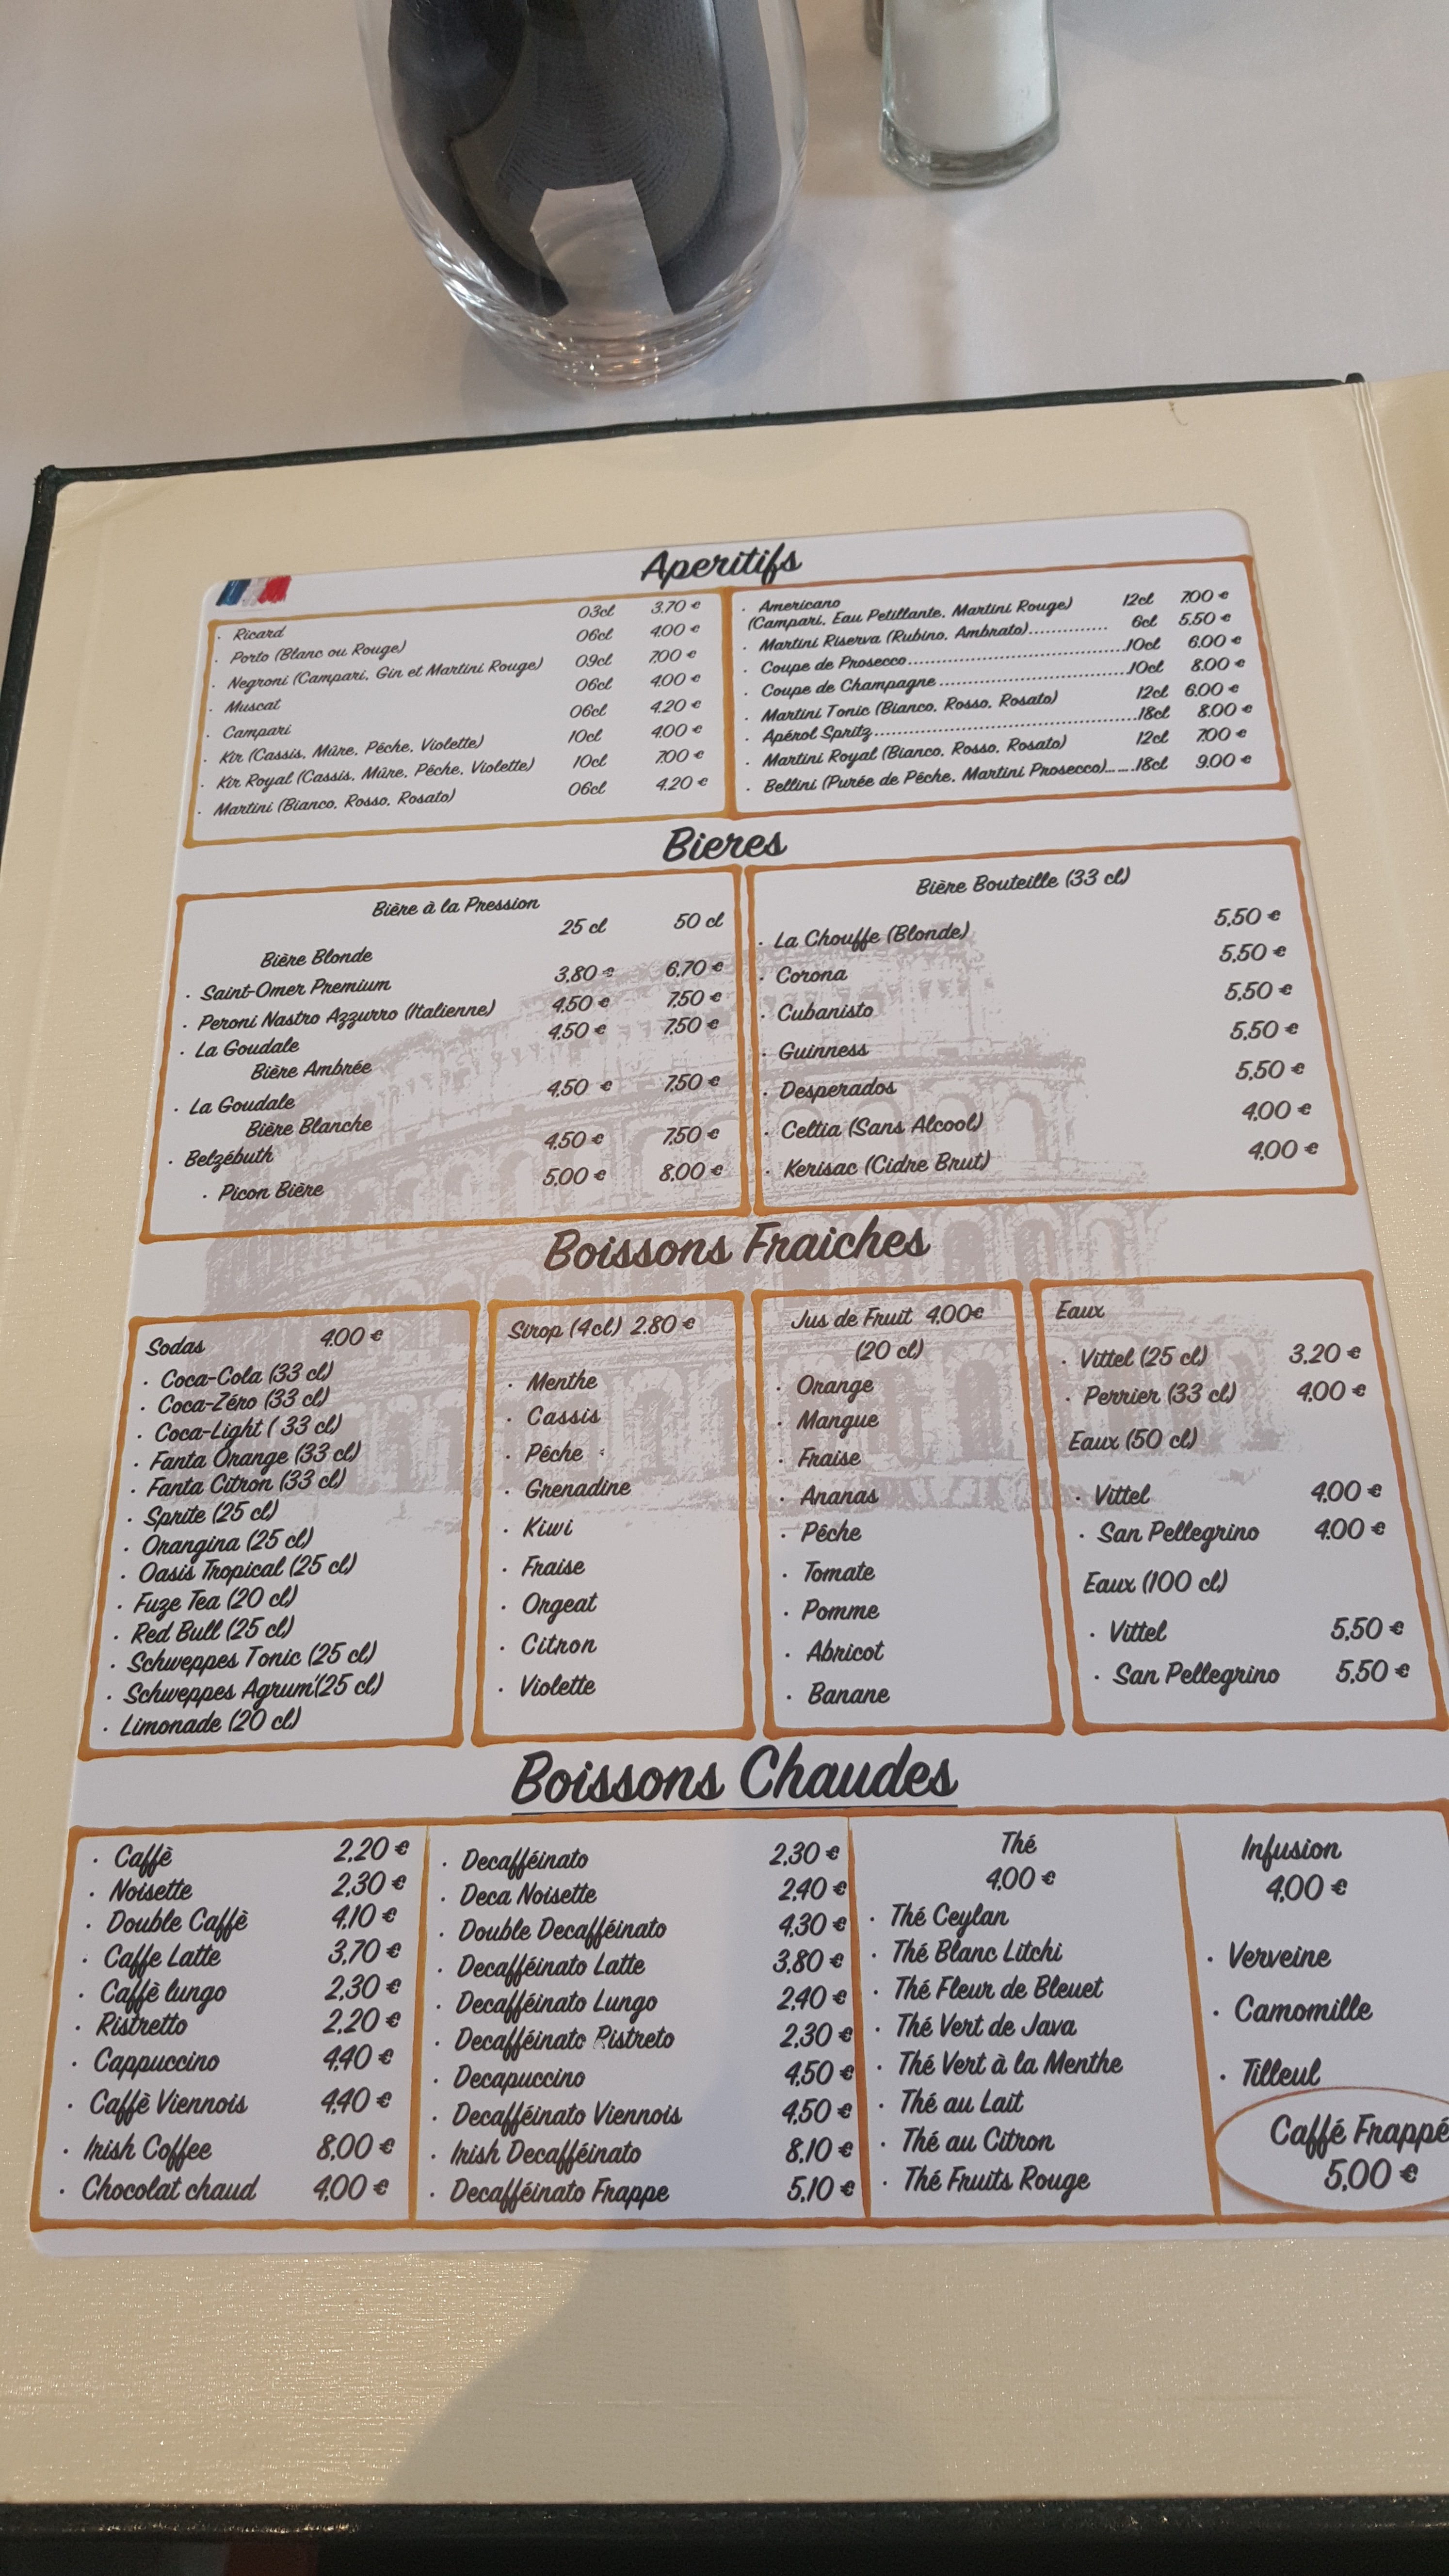 Aperitifs
Ricard 03cl 3.70 €
Porto (Blanc ou Rouge) 06cl 4.00 €
Negroni (Campari, Gin et Martini Rouge) 09cl 7.00 €
Muscat 06cl 4.00 €
Campari 06cl 4.20 €
Kir (Cassis, Mûre, Pêche, Violette) 10cl 4.00 €
Kir Royal (Cassis, Mûre, Pêche, Violette) 10cl 7.00 €
Martini (Bianco, Rosso, Rosato) 06cl 4.20 €
Americano 12cl 7.00 €
(Campari, Eau Petillante, Martini Rouge)
Martini Riserva (Rubino, Ambrato) 6cl 5.50 €
Coupe de Prosecco 10cl 6.00 €
Coupe de Champagne 10cl 8.00 €
Martini Tonic (Bianco, Rosso, Rosato) 12cl 6.00 €
Apérol Spritz 18cl 8.00 €
Martini Royal (Bianco, Rosso, Rosato) 12cl 7.00 €
Bellini (Purée de Pêche, Martini Prosecco) 18cl 9.00 €
Bieres
Bière à la Pression
25 cl 50 cl
Bière Blonde
Saint-Omer Premium 3,80 € 6,70 €
Peroni Nastro Azzurro (Italienne) 4,50 € 7,50 €
La Goudale 4,50 € 7,50 €
Bière Ambrée
La Goudale 4,50 € 7,50 €
Bière Blanche
Belzébuth 4,50 € 7,50 €
Picon Bière 5,00 € 8,00 €
Bière Bouteille (33 cl)
La Chouffe (Blonde) 5,50 €
Corona 5,50 €
Cubanisto 5,50 €
Guinness 5,50 €
Desperados 5,50 €
Celtia (Sans Alcool) 4,00 €
Kerisac (Cidre Brut) 4,00 €
Boissons Fraiches
Sodas 4,00 €
Coca-Cola (33 cl)
Coca-Zéro (33 cl)
Coca-Light ( 33 cl)
Fanta Orange (33 cl)
Fanta Citron (33 cl)
Sprite (25 cl)
Orangina (25 cl)
Oasis Tropical (25 cl)
Fuze Tea (20 cl)
Red Bull (25 cl)
Schweppes Tonic (25 cl)
Schweppes Agrum'(25 cl)
Limonade (20 cl)
Sirop (4cl) 2.80 €
Menthe
Cassis
Pêche
Grenadine
Kiwi
Fraise
Orgeat
Citron
Violette
Jus de Fruit 4,00€
(20 cl)
Orange
Mangue
Fraise
Ananas
Pêche
Tomate
Pomme
Abricot
Banane
Eaux
Vittel (25 cl) 3,20 €
Perrier (33 cl) 4,00 €
Eaux (50 cl)
Vittel 4,00 €
San Pellegrino 4,00 €
Eaux (100 cl)
Vittel 5,50 €
San Pellegrino 5,50 €
Boissons Chaudes
Caffè 2,20 €
Noisette 2,30 €
Double Caffè 4,10 €
Caffe Latte 3,70 €
Caffè lungo 2,30 €
Ristretto 2,20 €
Cappuccino 4,40 €
Caffè Viennois 4,40 €
Irish Coffee 8,00 €
Chocolat chaud 4,00 €
Decafféinato 2,30 €
Deca Noisette 2,40 €
Double Decafféinato 4,30 €
Decafféinato Latte 3,80 €
Decafféinato Lungo 2,40 €
Decafféinato Ristreto 2,30 €
Decapuccino 4,50 €
Decafféinato Viennois 4,50 €
Irish Decafféinato 8,10 €
Decafféinato Frappe 5,10 €
Thé
4,00 €
Thé Ceylan
Thé Blanc Litchi
Thé Fleur de Bleuet
Thé Vert de Java
Thé Vert à la Menthe
Thé au Lait
Thé au Citron
Thé Fruits Rouge
Infusion
4,00 €
Verveine
Camomille
Tilleul
Caffé Frappé
5,00 €